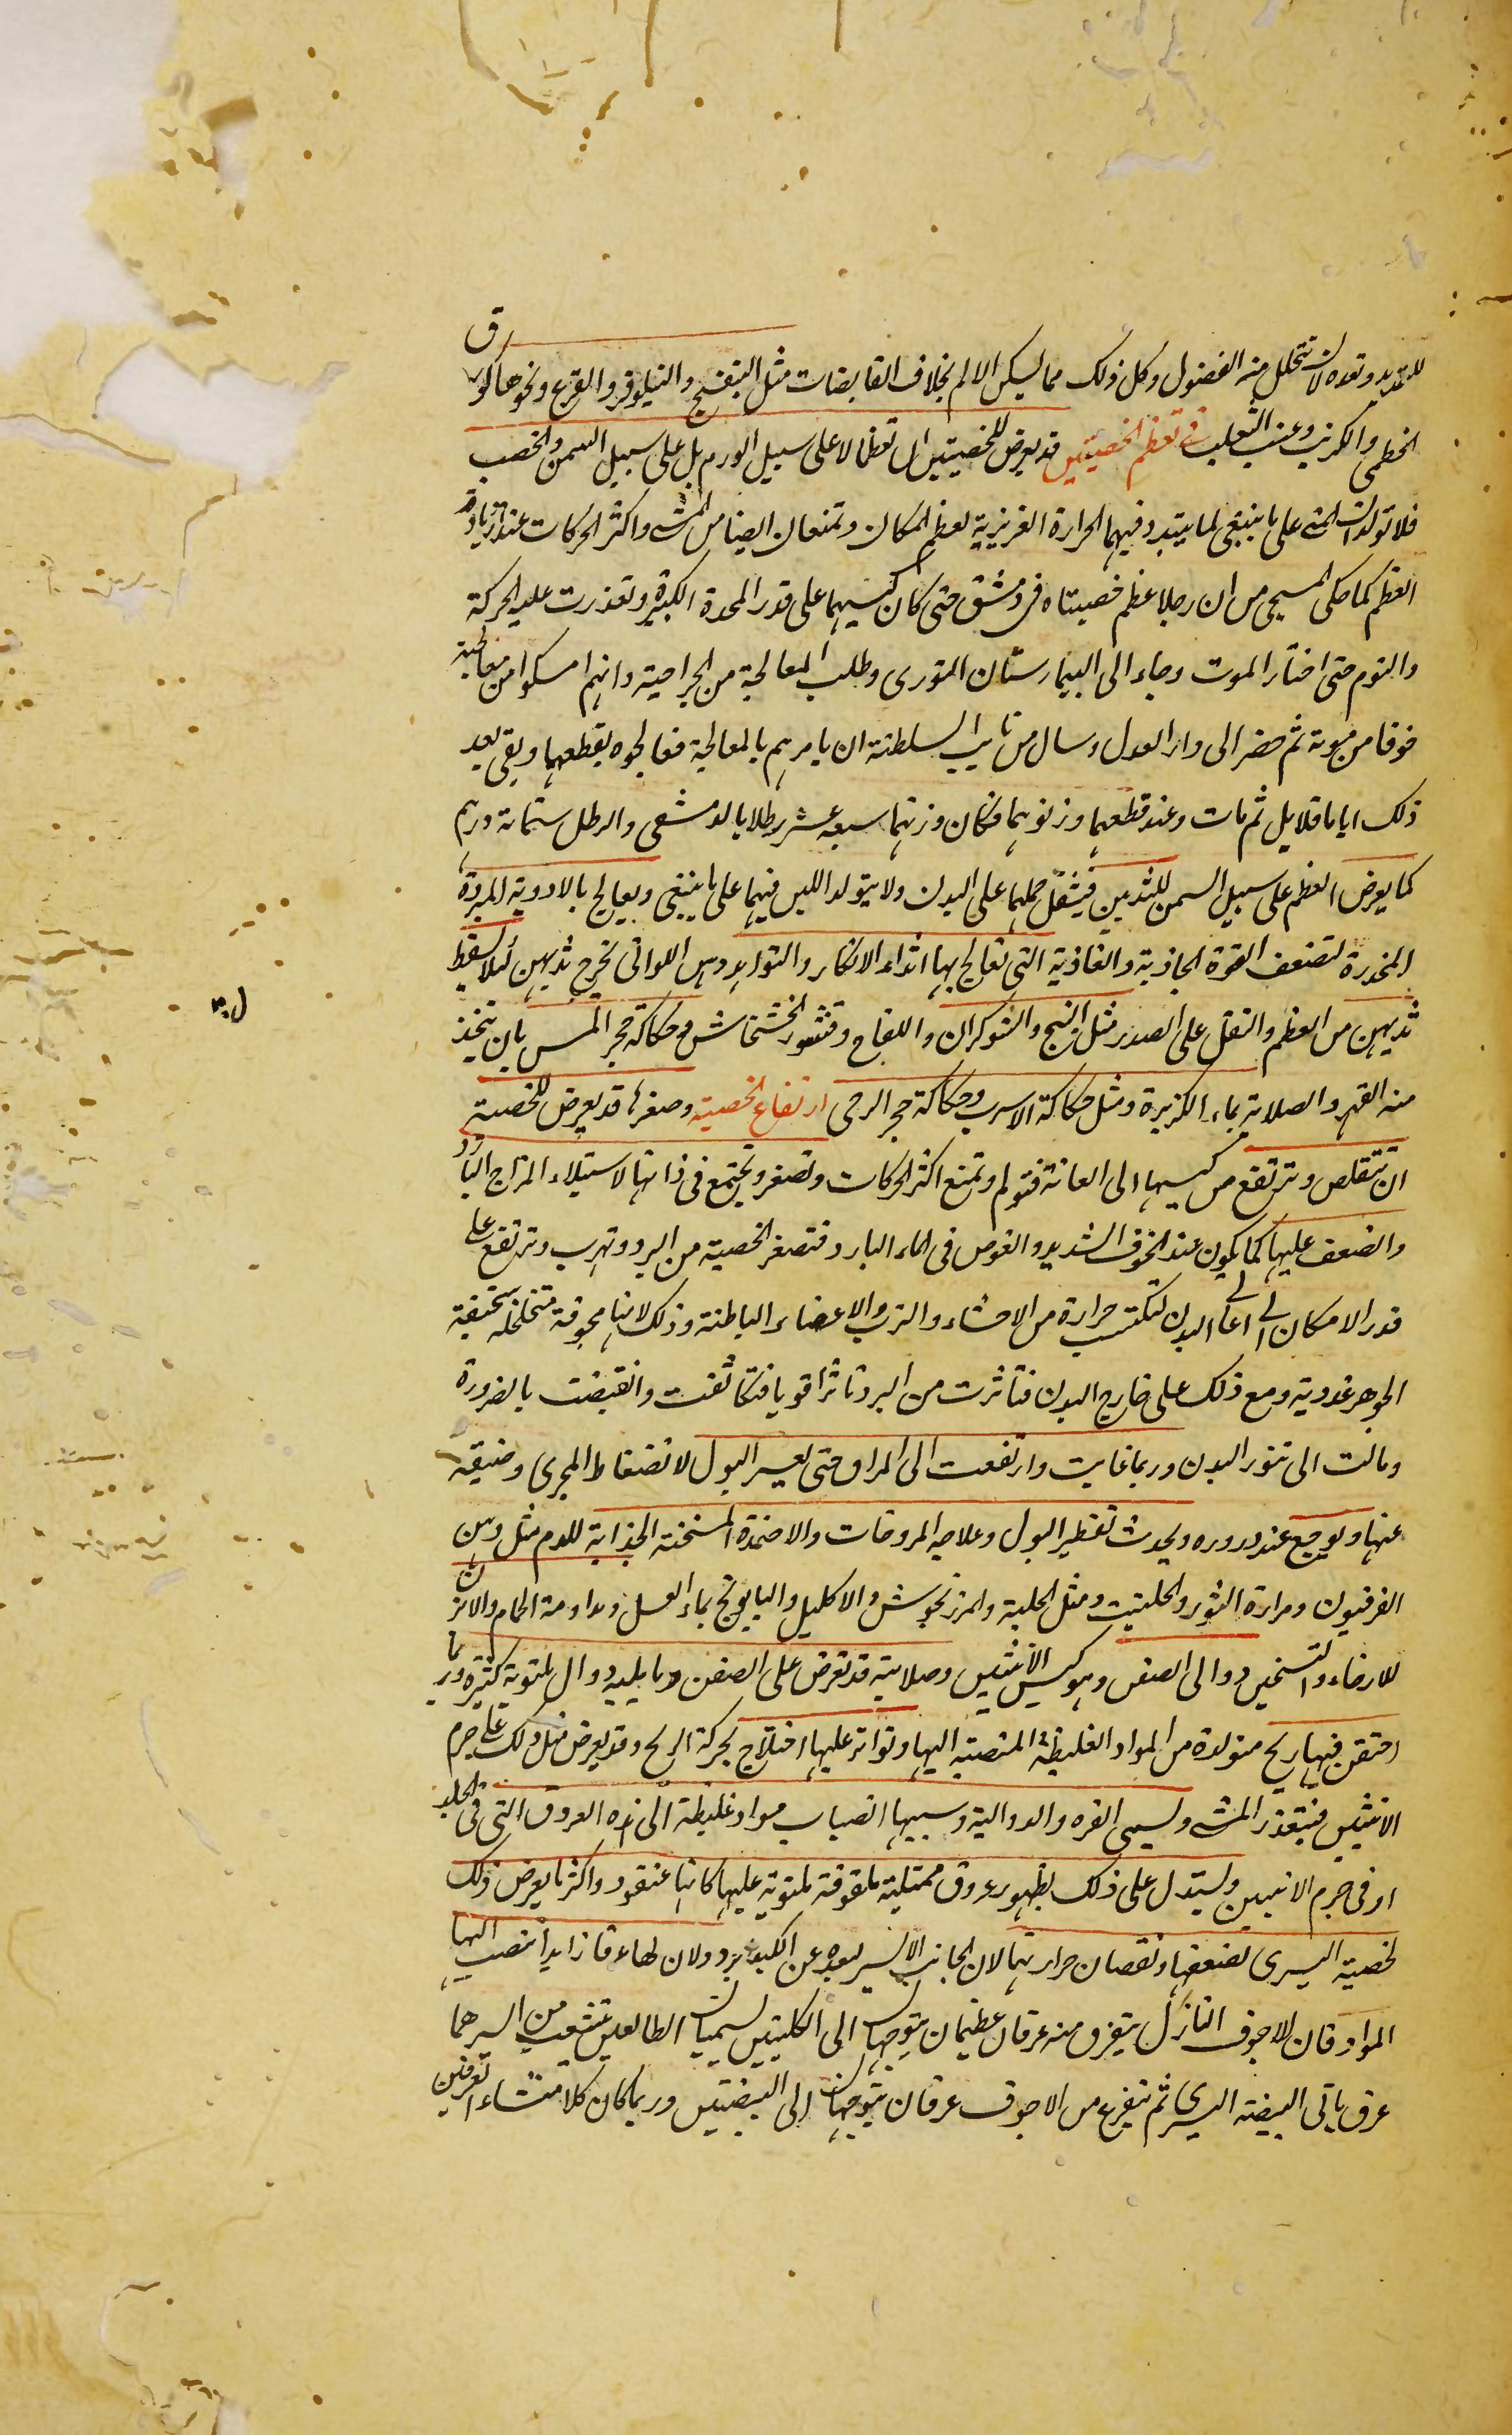 للتمديد وتعده لان تتحلل منه الفضول وكل ذلك مما يسكن الالم بخلاف القابضات مثل البنفسج والنيلوفر والقرع ونحوها كورق
الخطمى والكرنب وعنب الثعلب فى تعظم الخصيتين قد يعرض للخصيتين ان تعظما لا على سبيل الورم بل على سبيل السمن والخصب
فلا تولدان المنى على ما ينبغى لما يتبدد فيهما الحرارة الغريزية لعظم المكان وتمنعان ايضا من المشى واكثر الحركات عند ازدياد
العظم كما حكى المسيحى من ان رجلا عظم خصيتاه فى دمشق حتى كان كيسهما على قدر المخدة الكبيرة وتعذرت عليه الحركة
والنوم حتى اختار الموت وجاء الى البيمارستان النورى وطلب المعالجة من الجراحية وانهم امسكوا من معالجته
خوفا من موته ثم حضر الى دار العدل وسال من نايب السلطنة ان يامرهم بالمعالجة فعالجوه بقطعهما وبقى بعد
ذلك اياما قلايل ثم مات وعند قطعهما وزنوهما فكان وزنهما سبعه عشر رطلا بالدمشقى والرطل ستمائة درهم
كما يعرض العظم على سبيل السمن للثديين فيثقل حملهما على البدن ولا يتولد اللبن فيهما على ما ينبغى ويعالج بالادوية المبردة
المخدرة لتضعف القوة الجاذبة والغاذية التى تعالج بها اثداء الابكار والنواهد وهن اللواتى تخرج ثديهن لئلا يسقط
ثديهن من العظم والثقل على الصدر مثل البنج والشوكران واللفاح وقشور الخشخاش وحكاكة حجر المسن بان يتخذ
منه الفهر والصلاية بماء الكزبرة ومثل حكاكة الاسرب وحكاكة حجر الرحى ارتفاع الخصية وصغرها قد يعرض للخصية
ان تتقلص وترتفع من كيسها الى العانة فتولم وتمنع اكثر الحركات وتصغر وتجتمع فى ذاتها لاستيلاء المزاج البارد
والضعف عليها كما يكون عند الخوف الشديد والغوص فى الماء البارد فتصغر الخصية من البرد وتهرب وترتفع على
قدر الامكان الى اعالى البدن لتكتسب حرارة من الاحشاء والثرب والاعضاء الباطنة وذلك لانها مجوفة متخلخلة سخيفة
الجوهر غددية ومع ذلك على خارج البدن فتاثرت من البرد تاثرا قويا فتكاثفت وانقبضت بالضرورة
ومالت الى تنور البدن وربما غابت وارتفعت الى المراق حتى يعسر البول لانضغاط المجرى وضيقه
عنها ويوجع عند دروره ويحدث تقطير البول وعلاجه المروخات والاضمدة المسخنة الجذابة للدم مثل دهن
الفرفيون ومرارة الثور والحلتيت ومثل الحلبة والمرزنجوش والاكليل والبابونج بماء العسل ومداومة الحمام والابزن
للارخاء والتسخين دوالى الصفن وهو كيس الانثيين وصلابته قد تعرض على الصفن وما يليه دوال ملتوية كثيرة وربما
احتقن فيها ريح متولدة من المواد الغليظة المنصبة اليها وتواتر عليها اختلاج بحركة الريح وقد يعرض مثل ذلك على جرم
الانثيين فيتعذر المشى ويسمى القره والدوالية وسببها انصباب مواد غليظة الى هذه العروق التى فى الجلد
او فى جرم الانثيين ويستدل على ذلك بظهور عروق ممتلية ملفوفة ملتوية عليها كانها عنقود واكثر ما يعرض ذلك
لخصية اليسرى لضعفها ونقصان حرارتها لان الجانب الايسر لبعده عن الكبد ابرد ولان لها عرقا زايدا تنصب اليها
المواد فان للاجوف النازل يتفرق منه عرقان عظيمان يتوجهان الى الكليتين يسميان الطالعين تنشعب من ايسرهما
عرق ياتى البيضة اليسرى ثم يتفرع من الاجوف عرقان يتوجهان الى البيضتين وربما كان كلا منشاء العرقين